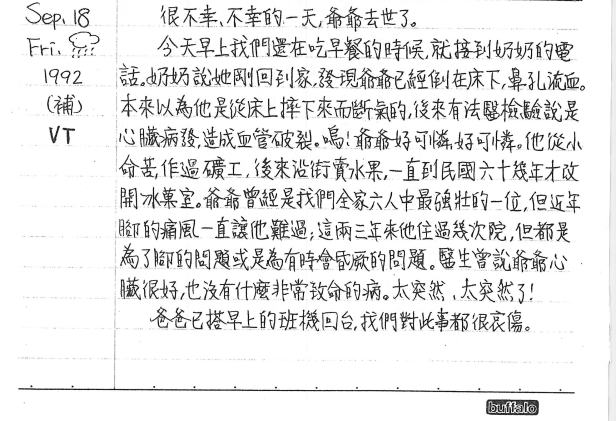 Sep. 18
Fri.
1992
(補)
VT
很不幸、不幸的一天,爺爺去世了。
今天早上我們還在吃早餐的時候,就接到奶奶的電
話。奶奶說她剛回到家,發現爺爺已經倒在床下,鼻孔流血。
本來以為他是從床上摔下來而斷氣的,後來有法醫檢驗說是
心臟病發,造成血管破裂。嗚!爺爺好可憐,好可憐。他從小
命苦,作過礦工,後來沿街賣水果,一直到民國六十幾年才改
開冰菓室。爺爺曾經是我們全家六人中最強壯的一位,但近年
腳的痛風一直讓他難過;這兩三年來他住過幾次院,但都是
為了腳的問題或是為有時會昏厥的問題。醫生曾說爺爺心
臟很好,也沒有什麼非常致命的病。太突然、太突然了!
爸爸已搭早上的班機回台,我們對此事都很哀傷。
buffalo